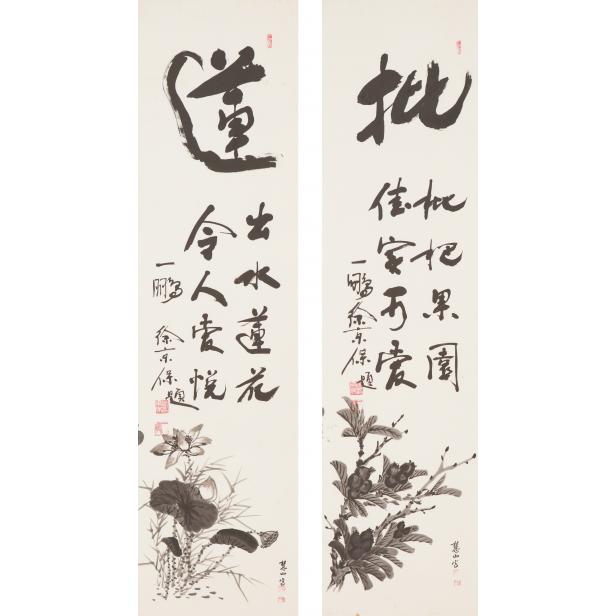 枇
枇杷果園
佳实可愛
一鵬 徐京保題
慧山写
蓮
出水蓮花
令人愛悅
一鵬 徐京保題
慧山写